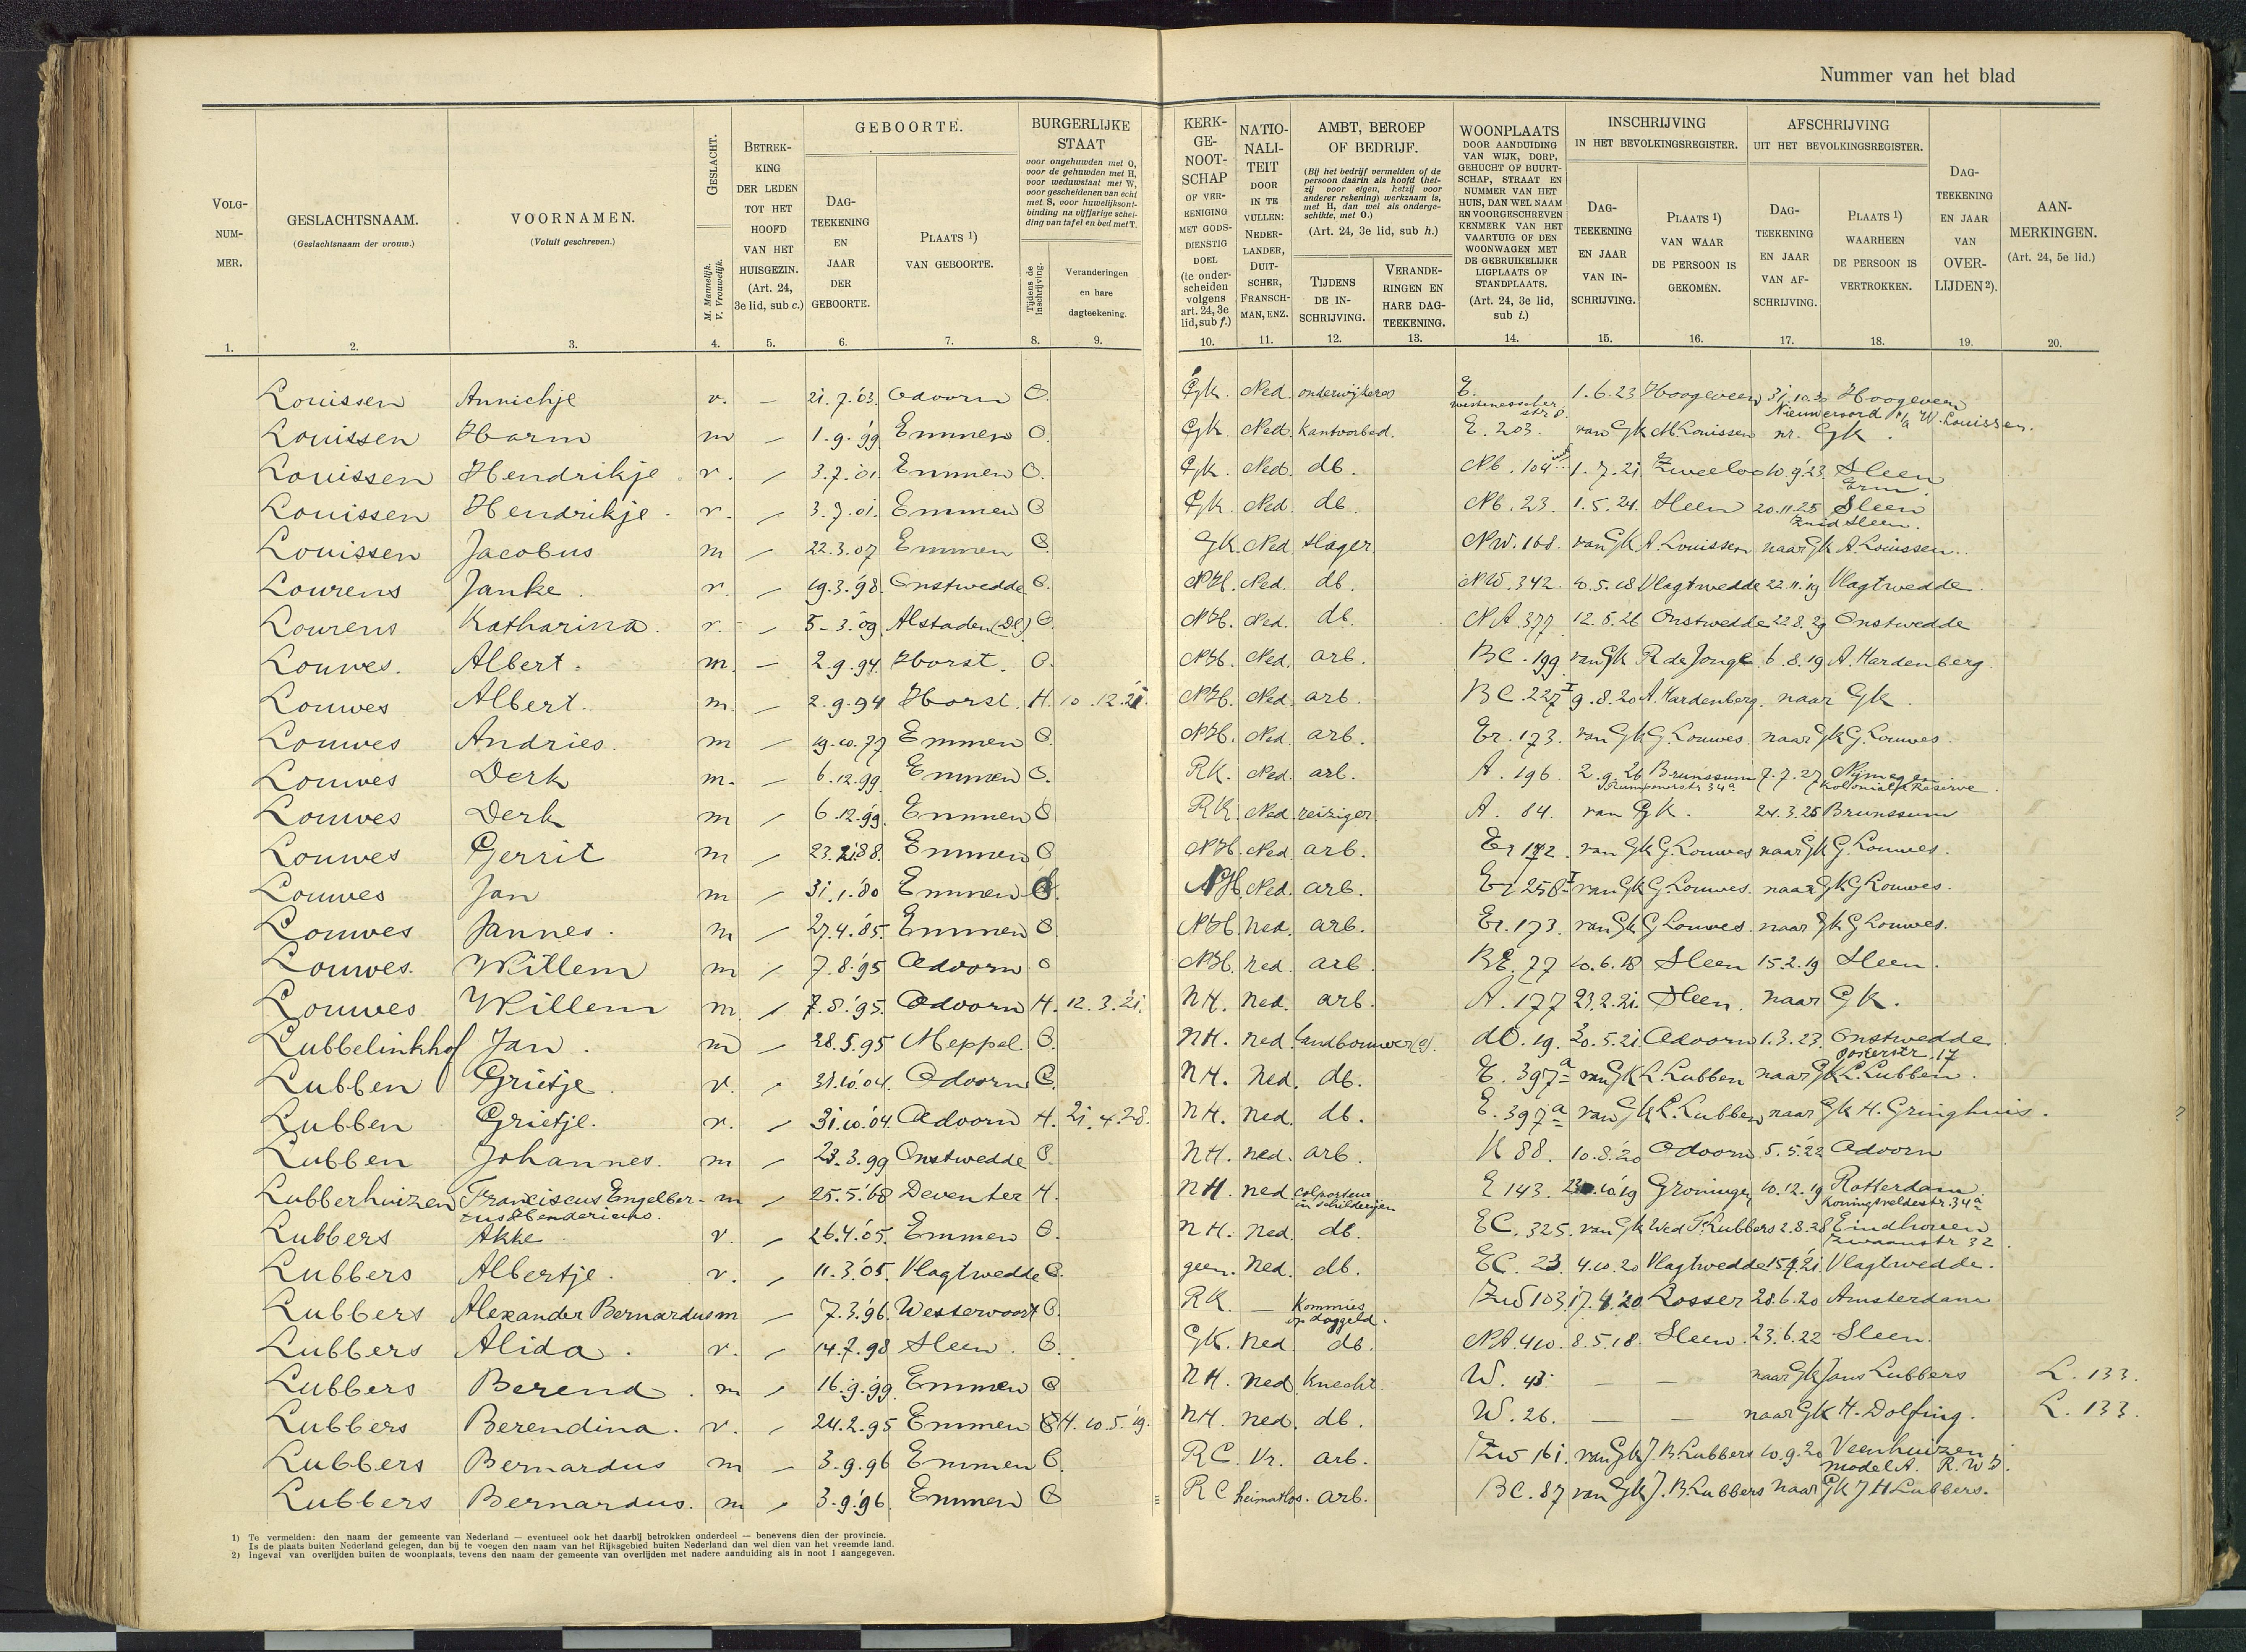 Nummer van het blad
VOLG-NUM-MER.
GESLACHTSNAAM.
(Geslachtsnaam der vrouw.)
VOORNAMEN.
(Voluit geschreven.)
GESLACHT.
M. Mannelijk.
V. Vrouwelijk.
BETREK-KING DER LEDEN TOT HET HOOFD VAN HET HUISGEZIN.
(Art. 24, 3e lid, sub c.)
GEBOORTE.
DAG-TEEKENING EN JAAR DER GEBOORTE.
PLAATS 1) VAN GEBOORTE.
BURGERLIJKE STAAT
voor ongehuwden met O, voor de gehuwden met H, voor weduwstaat met W, voor gescheidenen van echt met S, voor huwelijksont-binding na vijfjarige schei-ding van tafel en bed met T.
Tijdens de inschrijving.
Veranderingen en hare dagteekening.
KERK-GE-NOOT-SCHAP OF VER-EENIGING MET GODS-DIENSTIG DOEL
(te onder-scheiden volgens art. 24, 3e lid, sub f.)
NATIO-NALI-TEIT DOOR IN TE VULLEN: NEDER-LANDER, DUIT-SCHER, FRANSCH-MAN, ENZ.
AMBT, BEROEP OF BEDRIJF.
(Bij het bedrijf vermelden of de persoon daarin als hoofd (het-zij voor eigen, hetzij voor anderer rekening) werkzaam is, met H, dan wel als onderge-schikte, met O.)
(Art. 24, 3e lid, sub h.)
TIJDENS DE IN-SCHRIJVING.
VERANDE-RINGEN EN HARE DAG-TEEKENING.
WOONPLAATS DOOR AANDUIDING VAN WIJK, DORP, GEHUCHT OF BUURT-SCHAP, STRAAT EN NUMMER VAN HET HUIS, DAN WEL NAAM EN VOORGESCHREVEN KENMERK VAN HET VAARTUIG OF DEN WOONWAGEN MET DE GEBRUIKELIJKE LIGPLAATS OF STANDPLAATS.
(Art. 24, 3e lid, sub i.)
INSCHRIJVING IN HET BEVOLKINGSREGISTER.
DAG-TEEKENING EN JAAR VAN IN-SCHRIJVING.
PLAATS 1) VAN WAAR DE PERSOON IS GEKOMEN.
AFSCHRIJVING UIT HET BEVOLKINGSREGISTER.
DAG-TEEKENING EN JAAR VAN AF-SCHRIJVING.
PLAATS 1) WAARHEEN DE PERSOON IS VERTROKKEN.
DAG-TEEKENING EN JAAR VAN OVER-LIJDEN 2).
AAN-MERKINGEN.
(Art. 24, 5e lid.)
1. 2. 3. 4. 5. 6. 7. 8. 9. 10. 11. 12. 13. 14. 15. 16. 17. 18. 19. 20.
Louissen Annichje v. — 21.7.'03. Odoorn O. Gk. Ned. onderwijzeres E. Westenesscher str 8. 1.6.23 Hoogeveen 31.10.30 Hoogeveen Nieuweroord p/a W. Louissen.
Louissen Harm m — 1.9.'99 Emmen O. Gk. Ned. kantoorbed. E. 203. van Gk M. Louissen nr. Gk.
Louissen Hendrikje v. — 3.7.'01. Emmen O. Gk. Ned. db. Nb. 104 1.7.21 Zweeloo 10.9.'23 Sleen Erm.
Louissen Hendrikje. v. — 3.7.01. Emmen O Gk. Ned. db. Nb. 23. 1.5.24. Sleen 20.11.25 Sleen Zuid Sleen.
Louissen Jacobus m — 22.3.07 Emmen O. Gk. Ned. slager NW. 168. van Gk A. Louissen naar Gk A. Louissen.
Lourens Janke. v. — 19.3.'98. Onstwedde O. NH. Ned. db. NW. 342. 10.5.18 Vlagtwedde 22.11.'19 Vlagtwedde.
Lourens Katharina. v. — 5-3.'09. Alstaden (Dl) O. NH. Ned. db. NA. 377 12.5.26 Onstwedde 22.8.29 Onstwedde
Louwes. Albert. m. — 2.9.94. Horst. O. NH. Ned. arb. BC. 199 van Gk R de Jonge 6.8.19 A. Hardenberg.
Louwes Albert. m. — 2.9.94 Horst. H. 10.12.21. NH. Ned. arb. BC. 227 I 9.8.20 A. Hardenberg. naar Gk.
Louwes Andries. m — 19.10.77 Emmen O. NH. Ned. arb. Er. 173. van Gk G. Louwes naar Gk G. Louwes.
Louwes Derk m. — 6.12.99. Emmen O. RK. Ned. arb. A. 196. 2.9.26 Brunssum 7.7.27 Nijmegen Koloniale Reserve.
Louwes Derk m — 6.12.'99. Emmen O RK. Ned. reiziger A. 84. van Gk. 24.3.25 Brunssum
Louwes Gerrit m — Emmen O NH. Ned. arb. Er 172. van Gk G. Louwes naar Gk G. Louwes.
Louwes Jan m — 31.1.'80 Emmen O. NH. Ned. arb. Er 256 I van Gk G. Louwes. naar Gk G Louwes.
Louwes Jannes. m — 27.4.'85. Emmen O. NH. Ned. arb. Er. 173. van Gk G Louwes. naar Gk G Louwes.
Louwes. Willem m — 7.8.'95 Odoorn O NH. Ned. arb. BE. 77 10.6.18 Sleen 15.2.19 Sleen.
Louwes Willem m. — 7.8.'95. Odoorn H. 12.3.'21. NH. Ned. arb. A. 177 23.2.21. Sleen. naar Gk.
Lubbelinkhof Jan. m — 28.5.95 Meppel. O. NH. Ned. landbouwer (O). dO. 19. 20.5.21. Odoorn 1.3.23. Onstwedde Oosterstr. 17
Lubben Grietje. v. — 31.10.'04. Odoorn O. NH. Ned. db. E. 397 a van Gk L. Lubben naar Gk L. Lubben.
Lubben Grietje. v. — 31.10.'04. Odoorn H. 21.4.28. NH. Ned. db. E. 397 a van Gk L. Lubben naar Gk H. Gringhuis.
Lubben Johannes. m — 23.3.99 Onstwedde O. NH. Ned. arb. N 88. 10.8.'20 Odoorn 5.5.'22 Odoorn
Lubberhuizen Franciscus Engelber-tus Hendericus. m — 25.5.'68 Deventer H. NH. Ned colporteur in schilderijen E 143. Groningen 10.12.19 Rotterdam Koningsveldestr. 34a
Lubbers Akke v. — 26.4.'05. Emmen O. NH. Ned. db. EC. 325. van Gk Wed T. Lubbers 2.8.28 Eindhoven Zwaanstr 32.
Lubbers Albertje. v. — 11.3.'05. Vlagtwedde O. geen. Ned. db. EC. 23. 4.10.20 Vlagtwedde Vlagtwedde.
Lubbers Alexander Bernardus m — 7.3.'96. Westervoort O. RK. — Kommies op daggeld. ZW 103. 17.4.'20 Losser 28.6.20 Amsterdam
Lubbers Alida. v. — 14.7.98 Sleen. O. GK. Ned db. NA. 410. 8.5.18. Sleen. 23.6.22 Sleen.
Lubbers Berend. m — 16.9.'99 Emmen O NH. Ned. Knecht. W. 43. — — naar Gk Jans Lubbers L. 133.
Lubbers Berendina. v. — 24.2.95 Emmen O H. 10.5.'19. NH. Ned. db. W. 26. — — naar Gk H. Dolfing. L. 133.
Lubbers Bernardus m — 3.9.96 Emmen O. RC. Vr. arb. ZW 161. van Gk J. B. Lubbers 10.9.20 Veenhuizen model A. R.W.I.
Lubbers Bernardus. m — 3.9.'96. Emmen O RC heimatlos. arb. BC. 87 van Gk J. B. Lubbers naar Gk J H Lubbers.
1) Te vermelden: den naam der gemeente van Nederland — eventueel ook het daarbij betrokken onderdeel — benevens dien der provincie.
Is de plaats buiten Nederland gelegen, dan bij te voegen den naam van het Rijksgebied buiten Nederland dan wel dien van het vreemde land.
2) Ingeval van overlijden buiten de woonplaats, tevens den naam der gemeente van overlijden met nadere aanduiding als in noot 1 aangegeven.